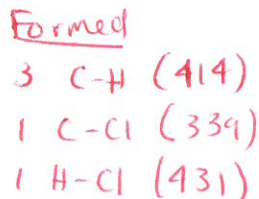 Formed
3 C-H (414)
1 C-Cl (339)
1 H-Cl (431)